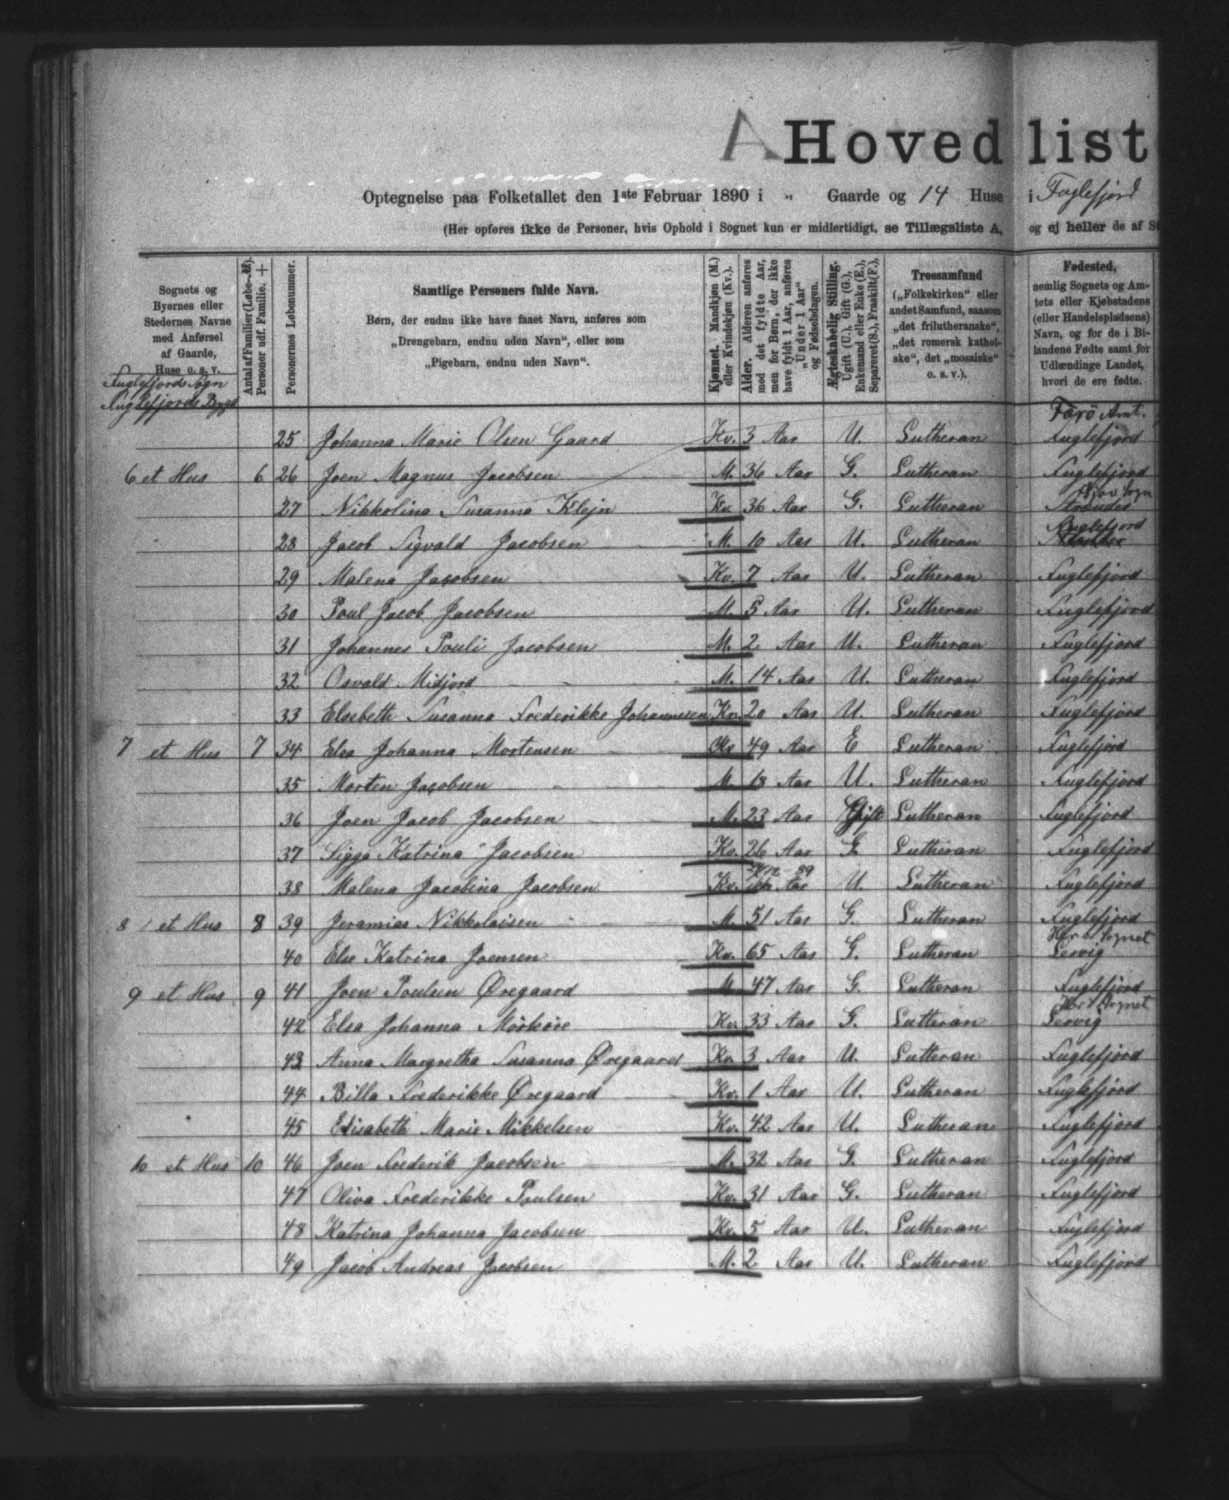 A Hovedlist
Optegnelse paa Folketallet den 1ste Februar 1890 i „ Gaarde og 14 Huse i Fuglefjord
(Her opføres ikke de Personer, hvis Ophold i Sognet kun er midlertidigt, se Tillægsliste A, og ej heller de af
Sognets og Byernes eller Stedernes Navne med Anførsel af Gaarde, Huse o. s. v.
Antal af Familier (Løbe-№). Personer udf. Familie. +
Personernes Løbenummer.
Samtlige Personers fulde Navn.
Børn, der endnu ikke have faaet Navn, anføres som
„Drengebarn, endnu uden Navn“, eller som
„Pigebarn, endnu uden Navn“.
Kjønnet. Mandkjøn (M.) eller Kvindekjøn (Kv.).
Alder. Alderen anføres med det fyldte Aar, men for Børn, der ikke have fyldt 1 Aar, anføres „Under 1 Aar“ og Fødselsdagen.
Ægteskabelig Stilling. Ugift (U.), Gift (G.), Enkemand eller Enke (E.), Separeret (S.), Fraskilt (F.).
Trossamfund („Folkekirken“ eller andet Samfund, saasom „det frilutheranske“, „det romersk katholske“, det „mosaiske“ o. s. v.).
Fødested, nemlig Sognets og Amtets eller Kjøbstadens (eller Handelspladsens) Navn, og for de i Bilandene Fødte samt for Udlændinge Landet, hvori de ere fødte.
Fuglefjords Sogn
Fuglefjords Bygd
Færø Amt.
25 Johanna Marie Olsen Gaard Kv. 3 Aar U. Lutheran Fuglefjord
6 et Hus 6 26 Joen Magnus Jacobsen M. 36 Aar G. Lutheran Fuglefjord
27 Nikkolina Susanna Klejn Kv. 36 Aar G. Lutheran Sogn
28 Jacob Sigvald Jacobsen M. 10 Aar U. Lutheran Fuglefjord
29 Malena Jacobsen Kv. 7 Aar U. Lutheran Fuglefjord
30 Poul Jacob Jacobsen M. 5 Aar U. Lutheran Fuglefjord
31 Johannes Pouli Jacobsen M. 2 Aar U. Lutheran Fuglefjord
32 Osvald Midjord M. 14 Aar U. Lutheran Fuglefjord
33 Elsebeth Susanna Frederikke Johannesen Kv. 20 Aar U. Lutheran Fuglefjord
7 et Hus 7 34 Elsa Johanna Mortensen Kv. 49 Aar E Lutheran Fuglefjord
35 Morten Jacobsen M. 13 Aar U. Lutheran Fuglefjord
36 Joen Jacob Jacobsen M. 23 Aar Gift Lutheran Fuglefjord
37 Sigga Katrina Jacobsen Kv. 26 Aar G. Lutheran Fuglefjord
38 Malena Jacobina Jacobsen Kv. Aar U. Lutheran Fuglefjord
8 et Hus 8 39 Jeramias Nikkolaisen M. 51 Aar G. Lutheran Fuglefjord
40 Else Katrina Joensen Kv. 65 Aar G. Lutheran Lervig Sognet
9 et Hus 9 41 Joen Poulsen Øregaard M. 47 Aar G. Lutheran Fuglefjord
42 Elsa Johanna Mørkøre Kv. 33 Aar G. Lutheran Lervig Sognet
43 Anna Margretha Susanna Øregaard Kv. 3 Aar U. Lutheran Fuglefjord
44 Billa Frederikke Øregaard Kv. 1 Aar U. Lutheran Fuglefjord
45 Elisabeth Marie Mikkelsen Kv. 42 Aar U. Lutheran Fuglefjord
10 et Hus 10 46 Joen Frederik Jacobsen M. 32 Aar G. Lutheran Fuglefjord
47 Oliva Frederikke Poulsen Kv. 31 Aar G. Lutheran Fuglefjord
48 Katrina Johanna Jacobsen Kv. 5 Aar U. Lutheran Fuglefjord
49 Jacob Andreas Jacobsen M. 2 Aar U. Lutheran Fuglefjord